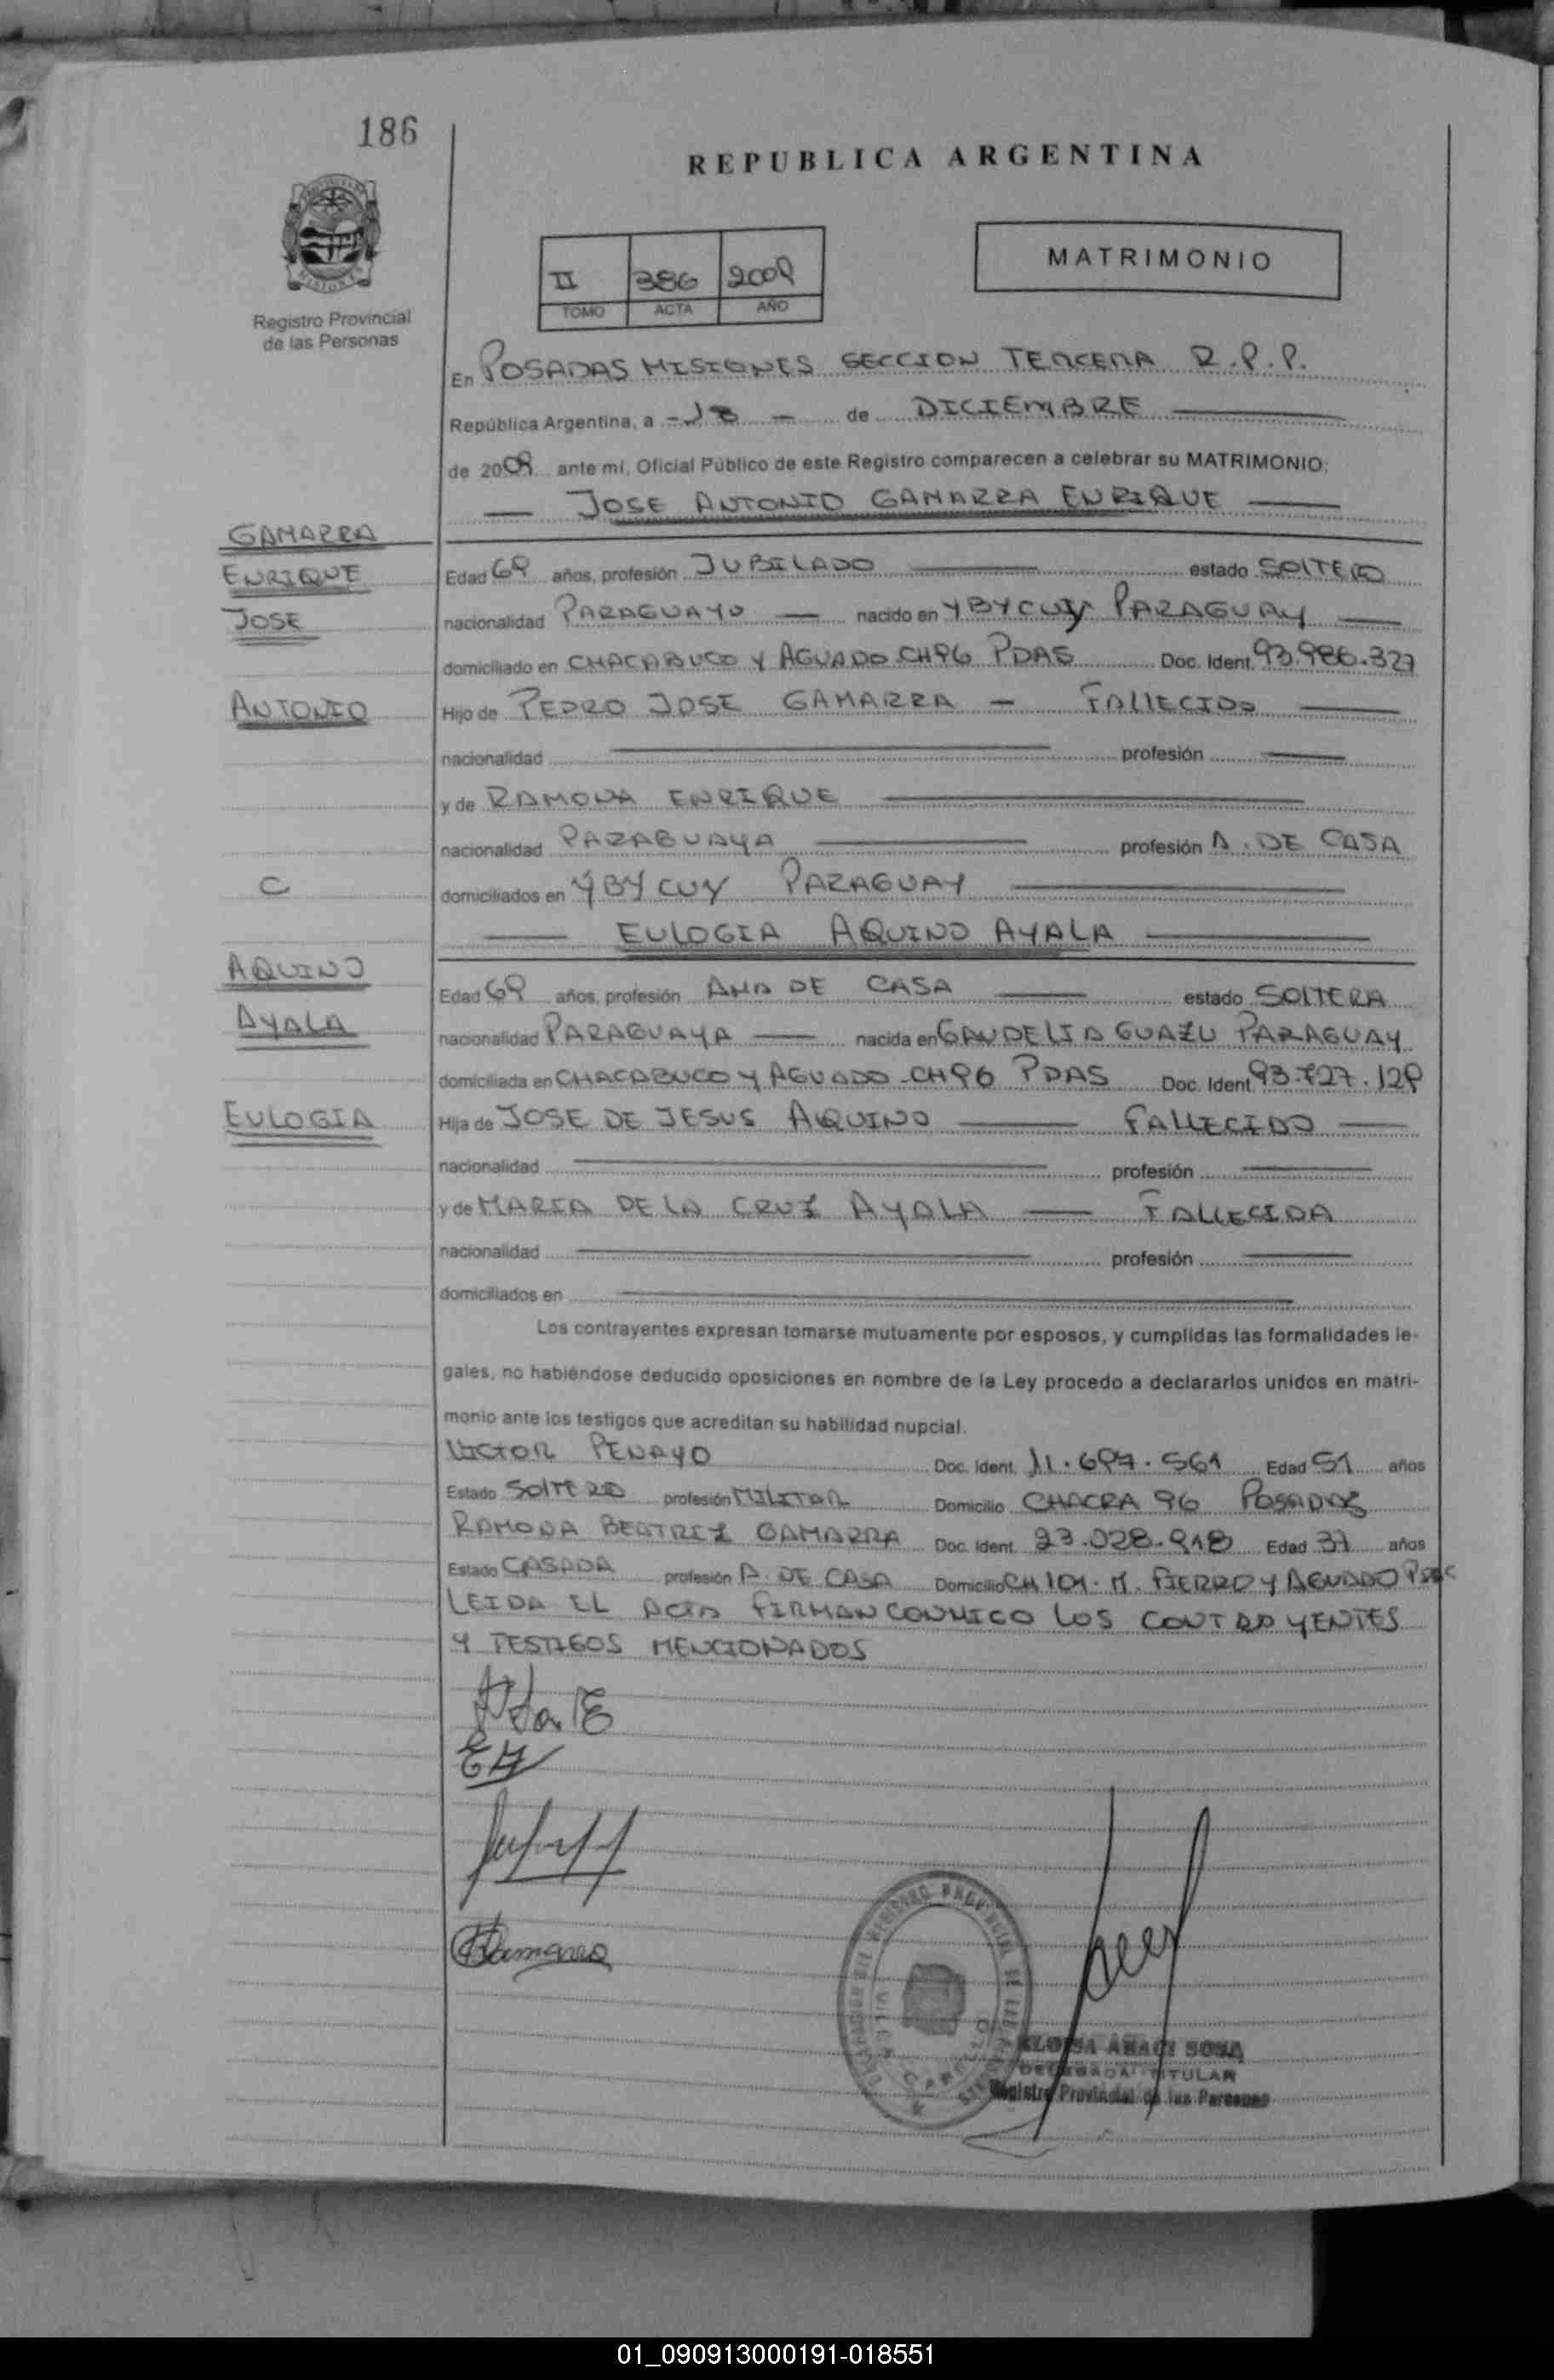 186
REPUBLICA ARGENTINA
MATRIMONIO
II 386 2009
TOMO ACTA AÑO
Registro Provincial
de las Personas
En POSADAS MISIONES SECCION TERCERA R.P.P.
República Argentina, a - 18 - de DICIEMBRE
de 2009 ante mí, Oficial Público de este Registro comparecen a celebrar su MATRIMONIO:
JOSE ANTONIO GAMARRA ENRIQUE
GAMARRA
ENRIQUE Edad 69 años, profesión JUBILADO estado SOLTERO
JOSE nacionalidad PARAGUAYO nacido en YBYCUY PARAGUAY
domiciliado en CHACABUCO Y AGUADO CH96 PDAS Doc. Ident. 93.986.327
ANTONIO Hijo de PEDRO JOSE GAMARRA - FALLECIDO
nacionalidad profesión
y de RAMONA ENRIQUE
nacionalidad PARAGUAYA profesión A. DE CASA
C domiciliados en YBYCUY PARAGUAY
EULOGIA AQUINO AYALA
AQUINO
Edad 69 años, profesión AMA DE CASA estado SOLTERA
AYALA nacionalidad PARAGUAYA nacida en PARAGUAY
domiciliada en CHACABUCO Y AGUADO - CH96 PDAS Doc. Ident. 93.727.129
EULOGIA Hija de JOSE DE JESUS AQUINO FALLECIDO
nacionalidad profesión
y de MARIA DE LA CRUZ AYALA FALLECIDA
nacionalidad profesión
domiciliados en
Los contrayentes expresan tomarse mutuamente por esposos, y cumplidas las formalidades le-
gales, no habiéndose deducido oposiciones en nombre de la Ley procedo a declararlos unidos en matri-
monio ante los testigos que acreditan su habilidad nupcial.
VICTOR PENAYO Doc. Ident. 11.697.561 Edad 51 años
Estado SOLTERO profesión MILITAR Domicilio CHACRA 96 POSADAS
RAMONA BEATRIZ GAMARRA Doc. Ident. 23.028.918 Edad 37 años
Estado CASADA profesión A. DE CASA Domicilio CH 101 - M. FIERRO Y AGUADO PDAS
LEIDA EL ACTA FIRMAN CONMIGO LOS CONTRAYENTES
Y TESTIGOS MENCIONADOS
EA
DELEGADA TITULAR
Registro Provincial de las Personas
01_090913000191-018551